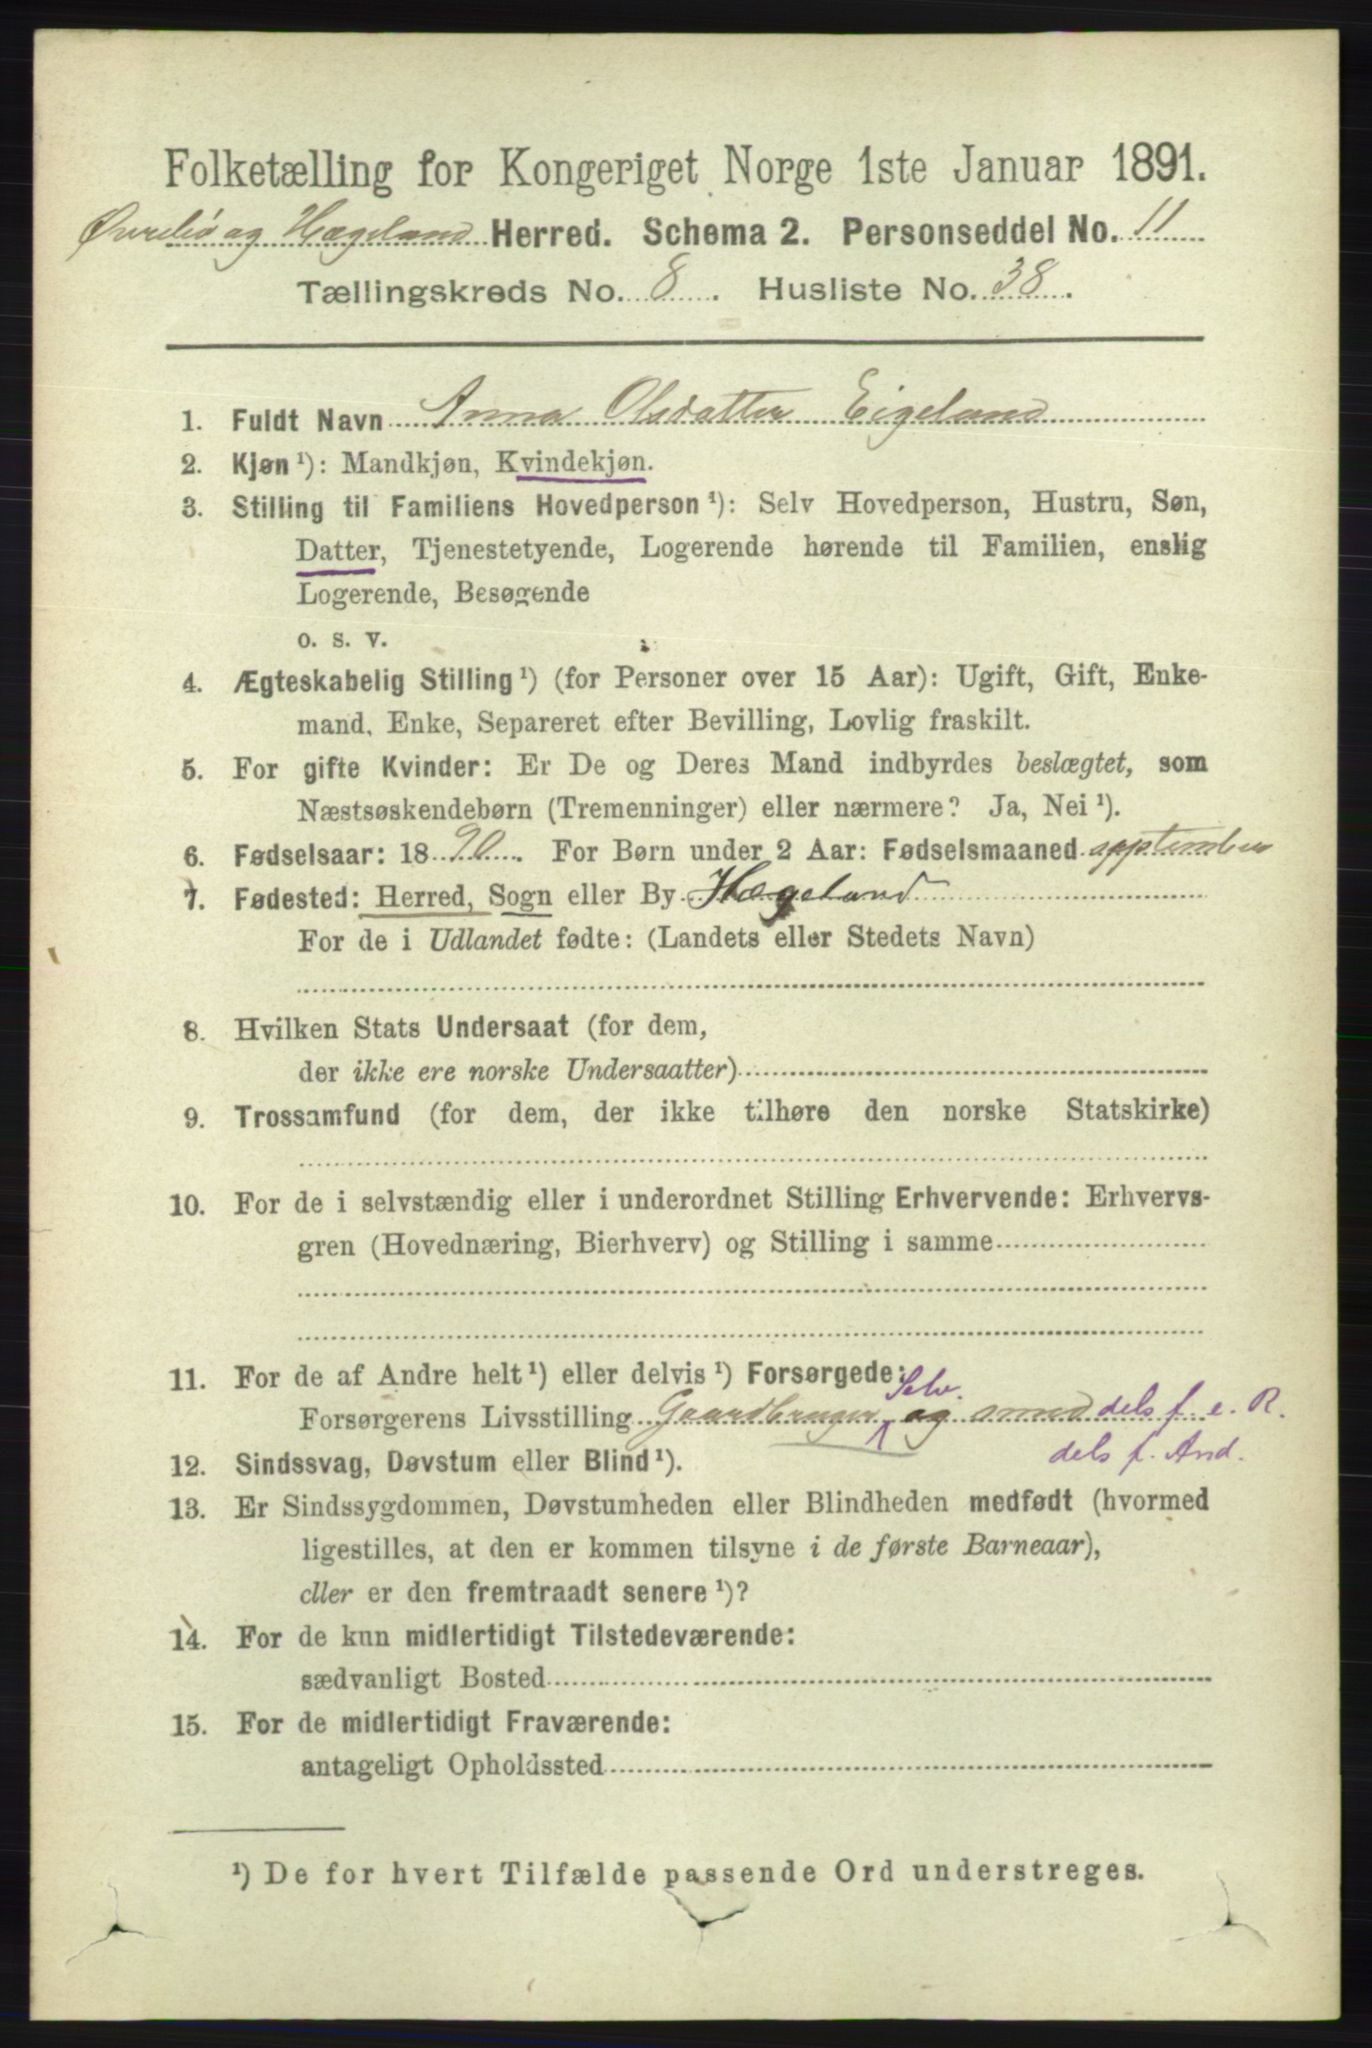 Folketælling for Kongeriget Norge 1ste Januar 1891.
Øvrebø og Hægeland Herred. Schema 2. Personseddel No. 11
Tællingskreds No. 8. Husliste No. 38.
1. Fuldt Navn Anna Olsdatter Eigeland
2. Kjøn ¹): Mandkjøn, Kvindekjøn.
3. Stilling til Familiens Hovedperson ¹): Selv Hovedperson, Hustru, Søn,
Datter, Tjenestetyende, Logerende hørende til Familien, enslig
Logerende, Besøgende
o. s. v.
4. Ægteskabelig Stilling ¹) (for Personer over 15 Aar): Ugift, Gift, Enke-
mand, Enke, Separeret efter Bevilling, Lovlig fraskilt.
5. For gifte Kvinder: Er De og Deres Mand indbyrdes beslægtet, som
Næstsøskendebørn (Tremenninger) eller nærmere? Ja, Nei ¹).
6. Fødselsaar: 1890. For Børn under 2 Aar: Fødselsmaaned september
7. Fødested: Herred, Sogn eller By Hægeland
For de i Udlandet fødte: (Landets eller Stedets Navn)
8. Hvilken Stats Undersaat (for dem,
der ikke ere norske Undersaatter)
9. Trossamfund (for dem, der ikke tilhøre den norske Statskirke)
10. For de i selvstændig eller i underordnet Stilling Erhvervende: Erhvervs-
gren (Hovednæring, Bierhverv) og Stilling i samme
11. For de af Andre helt ¹) eller delvis ¹) Forsørgede:
Selv.
Forsørgerens Livsstilling Gaardbruger og smed dels f. e. R.
dels f. And.
12. Sindssvag, Døvstum eller Blind ¹).
13. Er Sindssygdommen, Døvstumheden eller Blindheden medfødt (hvormed
ligestilles, at den er kommen tilsyne i de første Barneaar),
eller er den fremtraadt senere ¹)?
14. For de kun midlertidigt Tilstedeværende:
sædvanligt Bosted
15. For de midlertidigt Fraværende:
antageligt Opholdssted
¹) De for hvert Tilfælde passende Ord understreges.